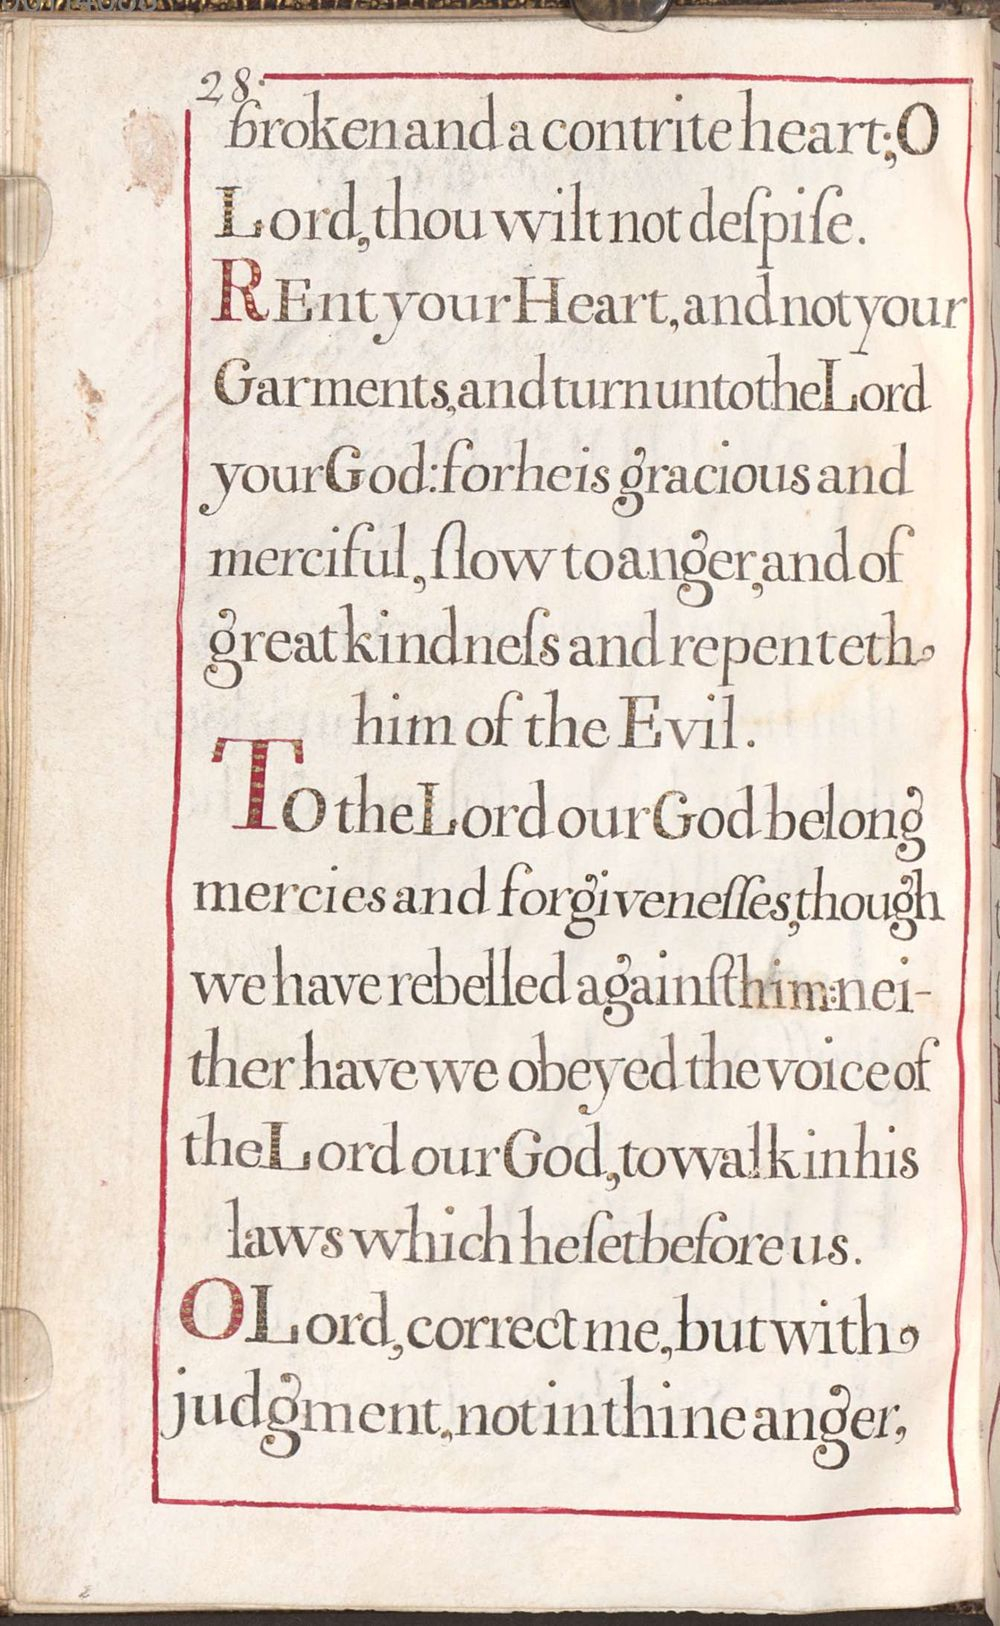 28.
broken and a contrite heart; O
Lord, thou wilt not deſpiſe.
REnt your Heart, and not your
Garments, and turn unto the Lord
your God: for he is gracious and
merciful, ſlow to anger, and of
great kindneſs and repenteth
him of the Evil.
TO the Lord our God belong
mercies and forgiveneſſes, though
we have rebelled againſt him: nei-
ther have we obeyed the voice of
the Lord our God, to walk in his
laws which he ſet before us.
O Lord, correct me, but with
judgment, not in thine anger,